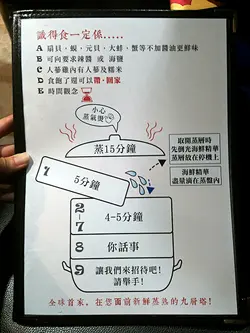 識得食一定係.....
A 扇貝、蜆、元貝、大蚌、蟹等不加醬油更鮮味
B 可向要求辣醬 或 海鹽
C 人蔘雞內有人蔘及糯米
D 食飽了還可以帶·回家
E 時間觀念
小心
蒸氣燙
蒸15分鐘
取開蒸層時
先倒光海鮮精華
蒸層放在停機上
1 5分鐘
海鮮精華
盡量滴在蒸盤內
2-7 4-5分鐘
8 你話事
9 讓我們來招待吧!
請舉手!
全球首家，在您面前新鮮蒸熟的九層塔!